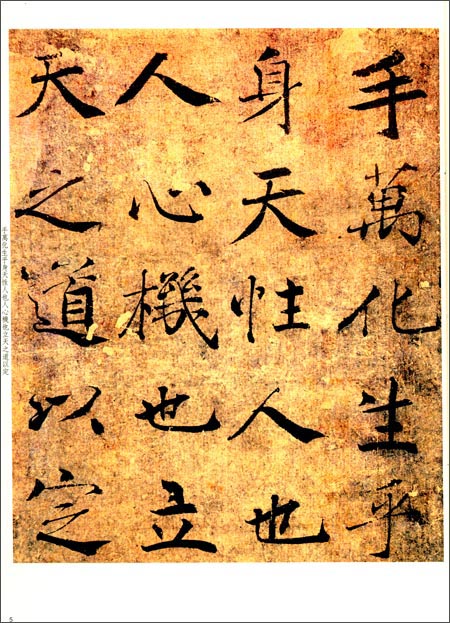 手萬化生乎
身天性人也
人心機也立
天之道以定
手萬化生乎身天性人也人心機也立天之道以定
5